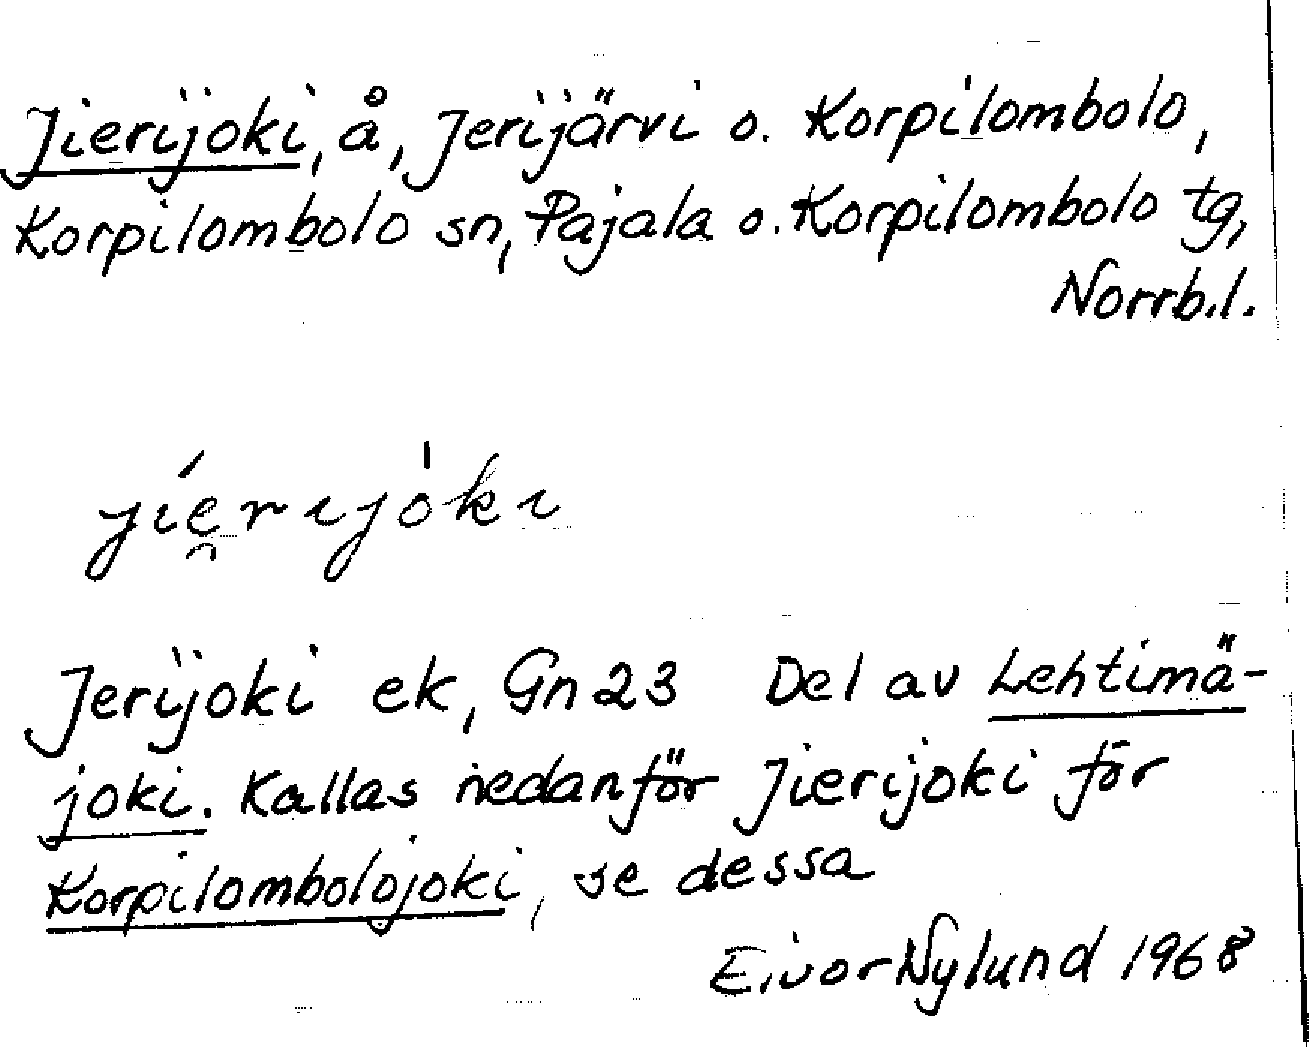 Jierijoki, å, Jerijärvi o. Korpilombolo,
Korpilombolo sn, Pajala o. Korpilombolo tg,
Norrb.l.
jíe̯rijòki
Jerijoki ek, Gn 23 Del av Lehtimä-
joki. Kallas nedanför Jierijoki för
Korpilombolojoki, se dessa
Eivor Nylund 1968